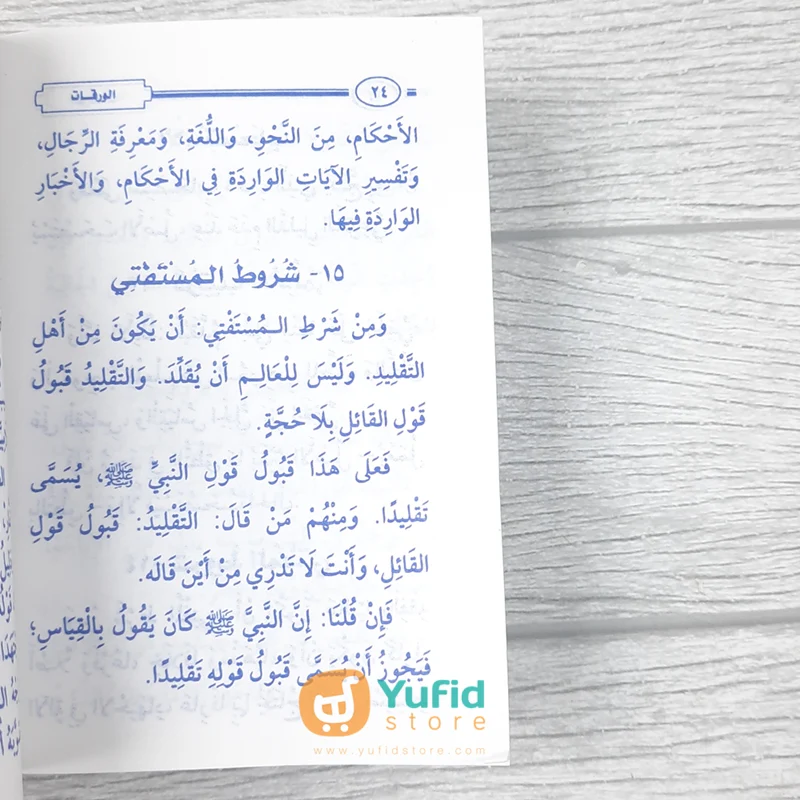 الورقات
٢٤
الأَحْكَامِ، مِنَ النَّحْوِ، وَاللُّغَةِ، وَمَعْرِفَةِ الرِّجَالِ،
وَتَفْسِيرِ الآيَاتِ الوَارِدَةِ فِي الأَحْكَامِ، وَالأَخْبَارِ
الوَارِدَةِ فِيهَا.
١٥- شُرُوطُ المُسْتَفْتِي
وَمِنْ شَرْطِ المُسْتَفْتِي: أَنْ يَكُونَ مِنْ أَهْلِ
التَّقْلِيدِ. وَلَيْسَ لِلْعَالِمِ أَنْ يُقَلِّدَ. وَالتَّقْلِيدُ قَبُولُ
قَوْلِ القَائِلِ بِلَا حُجَّةٍ.
فَعَلَى هَذَا قَبُولُ قَوْلِ النَّبِيِّ ﷺ، يُسَمَّى
تَقْلِيدًا. وَمِنْهُمْ مَنْ قَالَ: التَّقْلِيدُ: قَبُولُ قَوْلِ
القَائِلِ، وَأَنْتَ لَا تَدْرِي مِنْ أَيْنَ قَالَه.
فَإِنْ قُلْنَا: إِنَّ النَّبِيَّ ﷺ كَانَ يَقُولُ بِالْقِيَاسِ؛
فَيَجُوزُ أَنْ يُسَمَّى قَبُولُ قَوْلِهِ تَقْلِيدًا.
Yufid
store
www.yufidstore.com